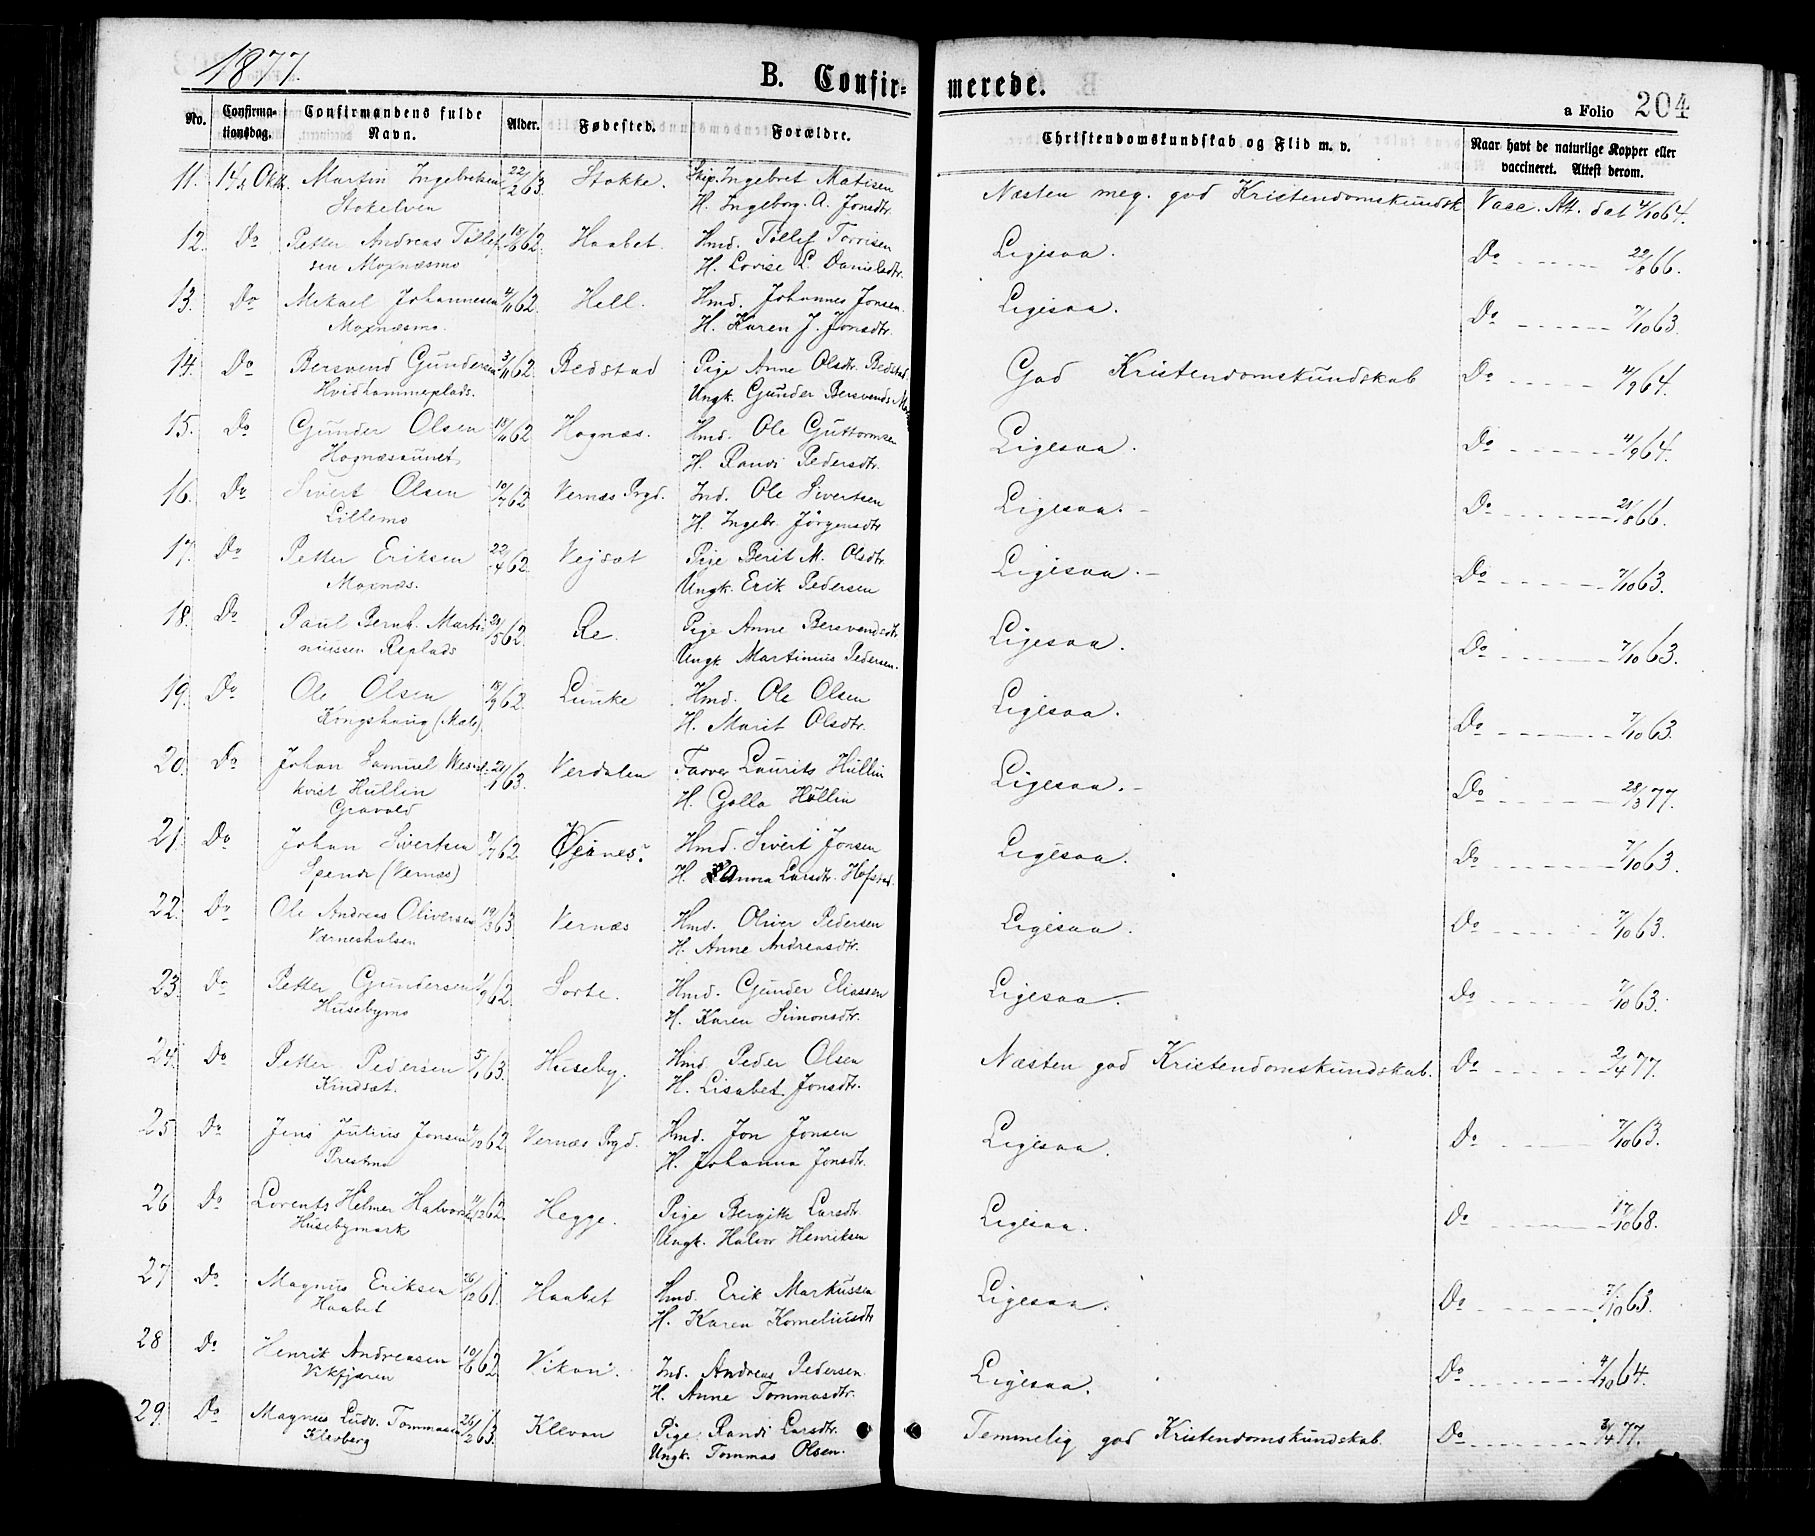 1877. B. Confir- merede. a Folio 204
No. Confirma-tionsdag. Confirmandens fulde Navn. Alder. Fødested. Forældre. Christendomskundskab og Flid m. v. Naar havt de naturlige Kopper eller vaccineret. Attest derom.
11. 14de Oktb. Martin Ingebrigtsen 22/2 63. Stokke. Ingebret Matisen Næsten meg. god Kristendomskundsk. Vacc. Att. dat 4/10 64.
Stokelven H. Ingeborg. A. Jonsdtr.
12. Do Petter Andreas Tøllef 62. Haabet. Hmd. Tøllef Torrisen Ligesaa. Do 22/8 66.
sen Moxnæsmo H. Lovise L. Danielsdtr.
13. Do Mikael Johannesen 62. Hell. Hmd. Johannes Jonsen. Ligesaa. Do 7/10 63.
Moxnæsmo. H. Karen J. Jonsdtr.
14. Do Bersvend Gundersen 3/11 62 Bedstad Pige Anne Olsdtr. Bedstad God Kristendomskundskab Do 64.
Hvidhammerplads. Ungk. Gunder Bersvends.
15. Do Gunder Olsen 62 Hognæs. Hmd. Ole Guttormsen Ligesaa. Do 64.
Hognæsaunet H. Randi Pedersdtr.
16. Do Sivert Olsen 10/7 62 Vernæs Prgd. Ind. Ole Sivertsen Ligesaa. Do 21/8 66.
Lillemo H. Ingebr. Jørgensdtr
17. Do Petter Eriksen 22/4 62. Vejsæt Pige Berit M. Olsdtr. Ligesaa. Do 7/10 63.
Moxnæs. Ungk. Erik Pedersen
18. Do Paul Bernh. Marti- 62 Re. Pige Anne Bersvendsdtr Ligesaa. Do 7/10 63.
niussen Replads Ungk. Martinius Pedersen.
19. Do Ole Olsen 62. Lunke Hmd. Ole Olsen Ligesaa. Do 7/10 63.
Kongshaug (Mæle) H. Marit Olsdtr.
20. Do Johan Samuel 63. Verdalen Farver Laurits Hullin Ligesaa. Do 28/3 77.
kvist Hullin H. Golla Hullin
Gravold
21. Do Johan Sivertsen 62. Vernes. Hmd. Sivert Jonsen Ligesaa. Do 7/10 63.
(Vernæs) H. Anna Larsdtr. Hofstad.
22. Do Ole Andreas Oliversen 19/3 63 Vernæs Hmd. Oliver Pedersen Ligesaa. Do 7/10 63.
Værneshalsen H. Anne Andreasdtr.
23. Do Petter Gundersen 1/9 62. Sorte. Hmd. Gunder Eliassen Ligesaa. Do 7/10 63.
Husebymo H. Karen Simonsdtr.
24. Do Petter Pedersen 5/1 63. Huseby. Hmd Peder Olsen Næsten god Kristendomskundskab. Do 2/4 77.
Kindsæt. H. Lisabet. Jonsdtr.
25. Do Jens Julius Jonsen 62 Vernæs Prgd. Hmd. Jon Jonsen Ligesaa. Do 7/10 63.
Prestmo H. Johanna Jonsdtr.
26 Do Lorents Helmer Halvorsen 62. Hegge. Pige Bergith Larsdtr Ligesaa. Do 17/10 68.
Husebymark Ungk. Halvor Henriksen
27 Do Magnus Eriksen 26/12 61. Haabet Hmd. Erik Markussen Ligesaa. Do 7/10 63.
Haabet H. Karen Korneliusdtr
28 Do Henrik Andreasen 10/6 62 Vikan. Ind. Andreas Pedersen. Ligesaa. Do 4/10 64.
Vikfjæren H. Anne Tommasdtr.
29. Do Magnus Ludv. Tommasen 26/2 63. Klevan Pige. Randi Larsdtr. Temmelig god Kristendomskundskab. Do 77.
Klevberg Ungk. Tommas Olsen.